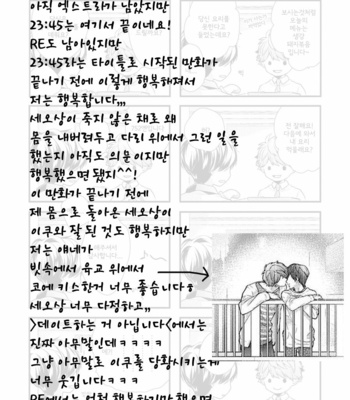 아직 엑스트라가 남았지만
23:45는 여기서 끝이네요!
RE도 남아있지만
23:45라는 타이틀로 시작된 만화가
끝나기 전에 이렇게 행복해져서
저는 행복합니다,,,
세오상이 죽지 않은 채로 왜
몸을 내버려두고 다리 위에서 그런 일을
했는지 아직도 의문이지만
행복했으면 됐지^^!
이 만화가 끝나기 전에
제 몸으로 돌아온 세오상이
이쿠와 잘 된 것도 행복하지만
저는 얘네가
빗속에서 육교 위에서
코에 키스한거 너무 좋습니다ㅎ
세오상 너무 다정하고,,
>데이트하는 거 아닙니다<에서는
진짜 아무말인데ㅋㅋㅋㅋ
그냥 아무말로 이쿠를 당황시키는게
너무 웃깁니다ㅋㅋㅋ